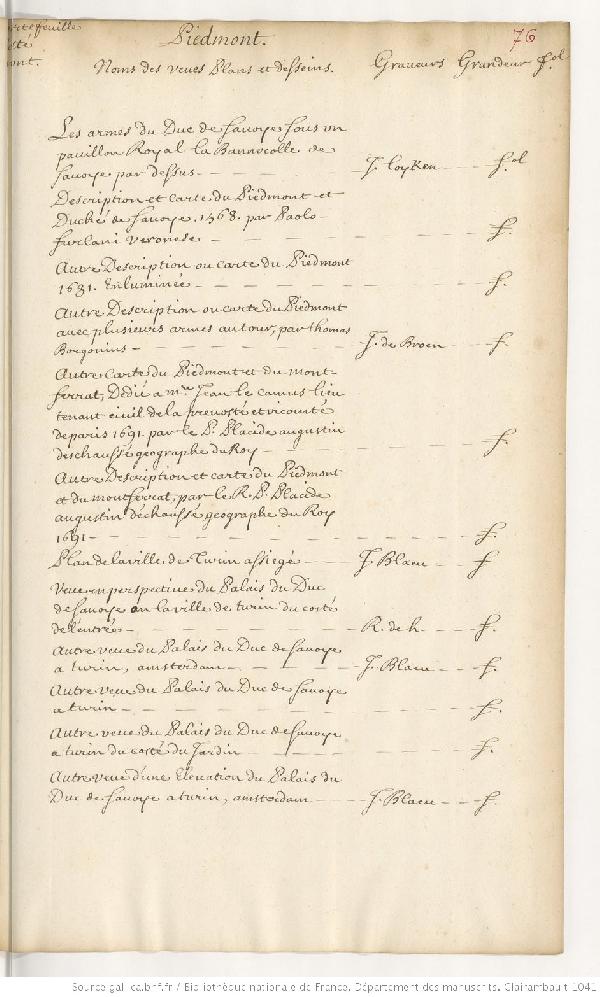 ortefeuille
Piedmont.
76
Noms des veues Plans et desseins. Graveurs Grandeur fol
Les armes du Duc de Savoye sous un
pavillon Royal la Bannerolle de
Savoye par dessus - - - - J. loyken - - fol
Description et Carte du Piedmont et
Duché de Savoye. 1568. par Paolo
furlani veronese - - - - f.
Autre Description ou carte du Piedmont
1631. Enluminée - - - - f.
Autre Description ou carte du Piedmont
avec plusieurs armes autour, par thomas
Borgonins - - - - J. de Broen - - f.
Autre Carte du Piedmont et du mont-
ferrat, Dedié a mre Jean le camus lieu
tenant civil de la prevosté et vicomté
de paris 1691. par le P. Placide augustin
deschaussé geographe du Roy - - - - f.
Autre Description et carte du Piedmont
et du montferrat, par le R. P. Placide
augustin déchaussé geographe du Roy
1691 - - - - f.
Plan de la ville de Turin assiegé - - J. Blaeu - - f
Veue en perspective du Palais du Duc
de Savoye en la ville de turin du costé
de l'entrée - - - - R. de h. - - f.
Autre veue du Palais du Duc de Savoye
a turin, amsterdam - - - - J. Blaeu - - f.
Autre veue du Palais du Duc de Savoye
a turin - - - - f.
Autre veue du Palais du Duc de Savoye
a turin du costé du Jardin - - - - f.
Autre veue d'une Elevation du Palais du
Duc de Savoye a turin, amsterdam - - J. Blaeu - - f.
Source gallica.bnf.fr / Bibliothèque nationale de France. Département des manuscrits. Clairambault 1041